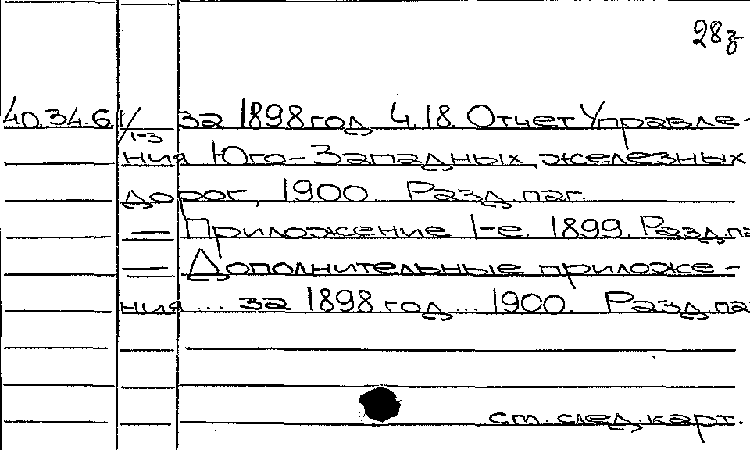 28з
40.34.6 1/1-3 за 1898 год Ч.18. Отчет Управле-
ния Юго-Западных железных
дорог, 1900. Разд.паг.
— Приложение 1-е. 1899. Разд.па
— Дополнительные приложе-
ния... за 1898 год... 1900. Разд.па
см. след. карт.